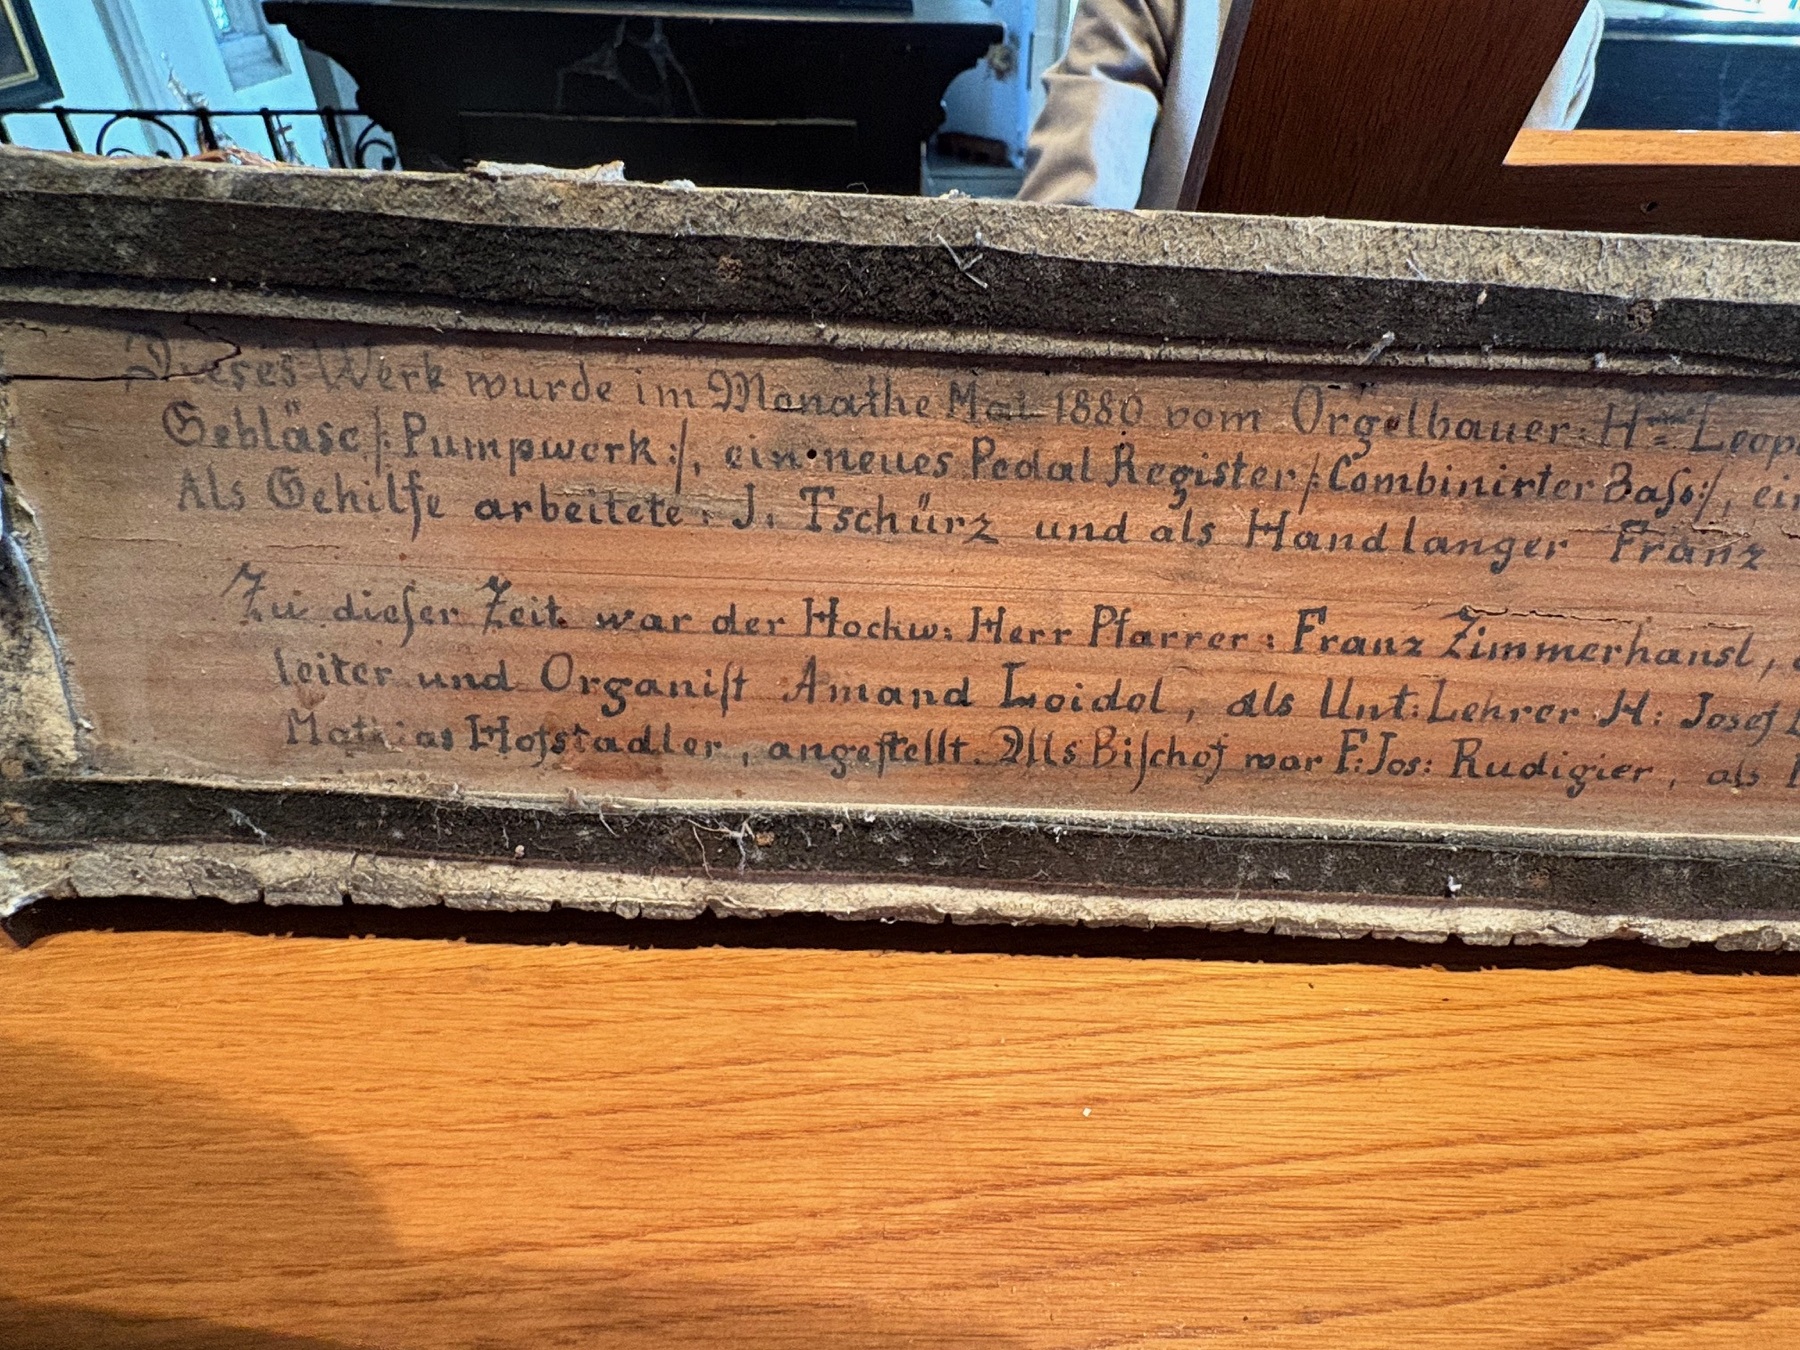 Dieses Werk wurde im Monathe Mai 1880 vom Orgelbauer: H= Leop
Gebläse /: Pumpwerk :/, ein neues Pedal Register /: Combinirter Baſs :/, ein
Als Gehilfe arbeitete: J. Tschürz und als Handlanger Franz
Zu dieſer Zeit war der Hochw: Herr Pfarrer: Franz Zimmerhansl,
leiter und Organiſt Amand Loidol, als Unt: Lehrer H: Josef
Mathias Hofstadler, angeſtellt. Als Biſchof war F: Jos: Rudigier, als